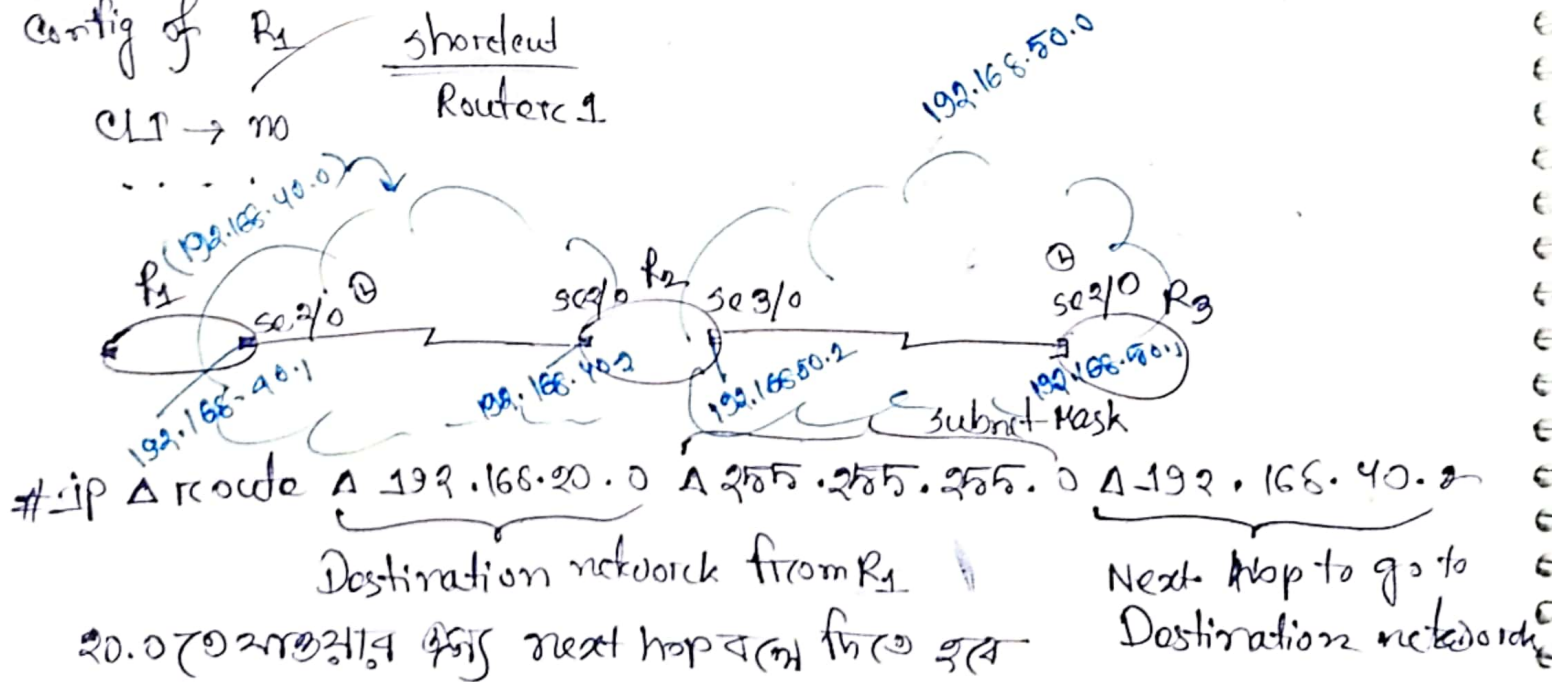 Config of R1
shordcut
Router 1
CLI → no
. . . .
192.168.50.0
(192.168.40.0)
R1
se2/0
se2/0
R2
se3/0
se2/0
R3
192.168.40.1
192.168.40.2
192.168.50.2
192.168.50.1
Subnet Mask
#ip Δ route Δ 192.168.20.0 Δ 255.255.255.0 Δ 192.168.40.2
Destination network from R1
Next hop to go to
Destination network
20.0 তে যাওয়ার জন্য next hop বলে দিতে হবে